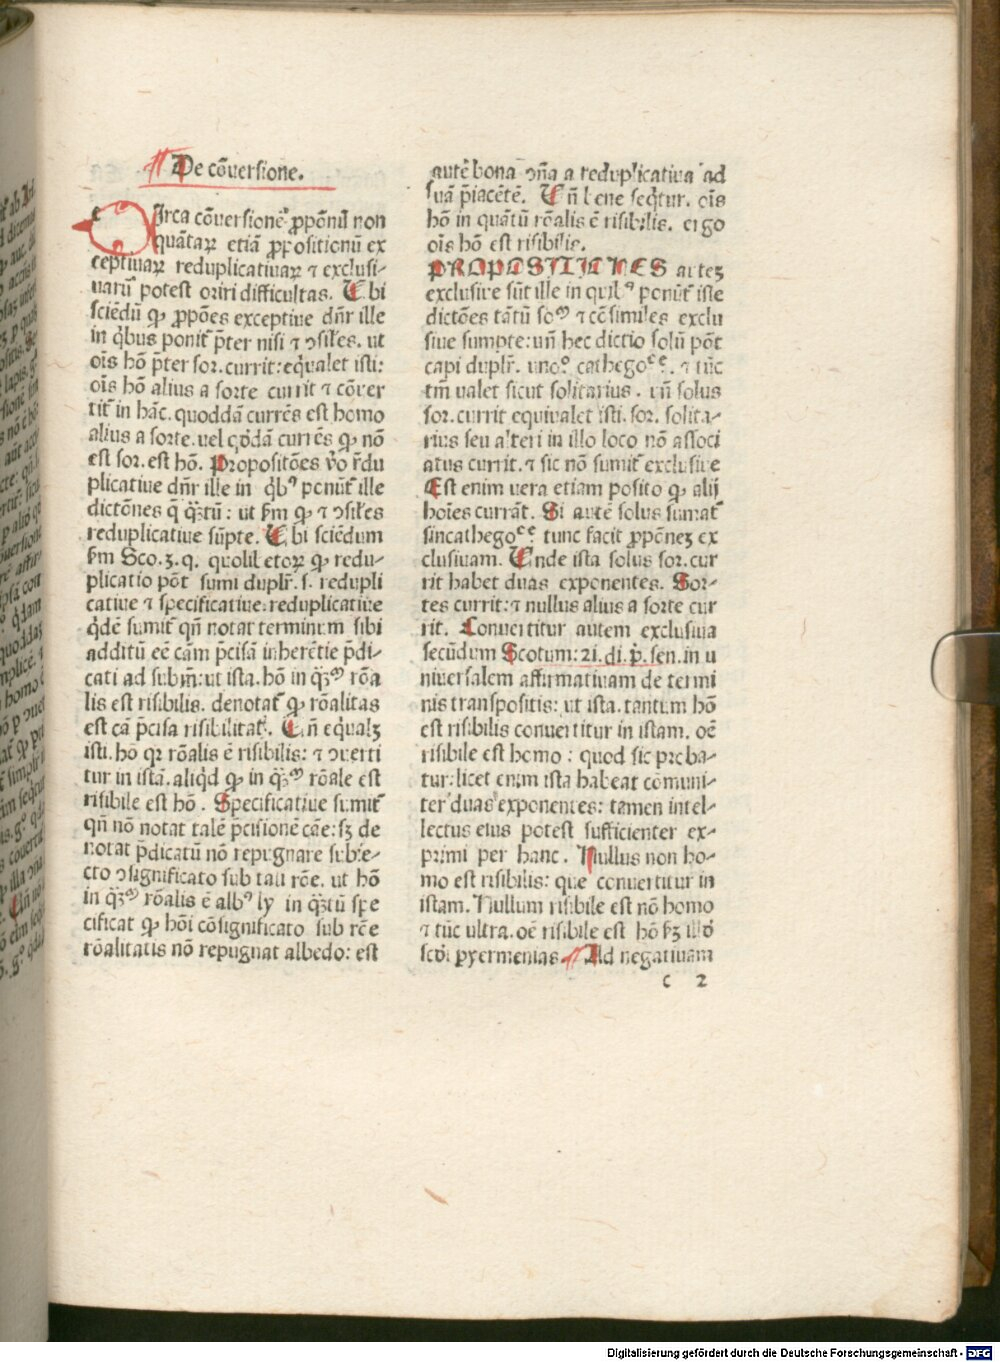 De cōuersione.
Irca cōuersionē ꝓpōnū non
quātaꝝ etiā ꝓpositionū ex
ceptiuaꝝ reduplicatiuaꝝ ⁊ exclusi-
uarū potest oriri difficultas. Ubi
sciēdū ꝙ ꝓpōes exceptiue dn̄r ille
in q̇bus ponit̄ p̄ter nisi ⁊ ꝯsiłes. ut
oīs hō p̄ter sor. currit: eq̇ualet isti:
oīs hō alius a sorte currit ⁊ cōuer
tit̄ in hāc. quoddā currēs est homo
alius a sorte. uel q̇dā currēs ꝙ nō
est sor. est hō. Propositōes v̄o r̄du
plicatiue dn̄r ille in q̇bꝰ ponūt̄ ille
dictōnes q̄ q̄ꝫtū: ut ẜm ꝙ ⁊ ꝯsiłes
reduplicatiue sūpte. Ubi sciēdum
ẜm Sco. 3. q. quolibetoꝝ ꝙ redu-
plicatio pōt sumi duplr̄. s. redupli
catiue ⁊ specificatiue: reduplicatiue
q̇dē sumit̄ qn̄ notat terminum sibi
additū eē cām p̄cisā inherētie p̄di-
cati ad subm̄: ut ista. hō in q̄ꝫᵐ rōa
lis est risibilis. denotat̄ ꝙ rōalitas
est cā p̄cisa risibilitat̄. Un̄ eq̇ualꝫ
isti. hō qꝛ rōalis ē risibilis: ⁊ ꝯuerti
tur in istā. aliq̇d ꝙ in q̄ꝫᵐ rōale est
risibile est hō. Specificatiue sumit̄
qn̄ nō notat talē p̄cisionē cāe: sꝫ de
notat p̄dicatū nō repugnare subie-
cto ꝯsignificato sub tali rōe. ut hō
in q̄ꝫᵐ rōalis ē albꝰ ly in q̄ꝫtū spe
cificat ꝙ hōi cōsignificato sub rōe
rōalitatis nō repugnat albedo: est
autē bona ꝯn̄a a reduplicatiua ad
suā p̄iacētē. Un̄ bene seq̄tur. oīs
hō in quātū rōalis ē risibilis. ergo
oīs hō est risibilis.
PROPOSITIONES auteꝫ
exclusiue sūt ille in quibꝰ ponūt̄ iste
dictōes tātū soᵐ ⁊ cōsimiles exclu
siue sumpte: un̄ hec dictio solū pōt
capi duplr̄. unoº cathegoᶜᵉ. ⁊ tūc
tm̄ ualet sicut solitarius. un̄ solus
sor. currit equiualet isti. sor. solita-
rius seu alteri in illo loco nō associ
atus currit. ⁊ sic nō sumit̄ exclusiue
Est enim vera etiam posito ꝙ alij
hoīes currāt. Si autē solus sumat̄
sincathegoᶜᵉ tunc facit ꝓpōneꝫ ex
clusiuam. Unde ista solus sor. cur
rit habet duas exponentes. Sor-
tes currit: ⁊ nullus alius a sorte cur
rit. Conuertitur autem exclusiua
secūdum Scotum: 21. di. p̄. sen. in u
niuersalem affirmatiuam de termi
nis transpositis: ut ista. tantum hō
est risibilis conuertitur in istam. oē
risibile est homo: quod sic proba-
tur: licet enim ista habeat cōmuni-
ter duas exponentes: tamen intel-
lectus eius potest sufficienter ex-
primi per hanc. Nullus non ho-
mo est risibilis: que conuertitur in
istam. Nullum risibile est nō homo
⁊ tūc ultra. oē risibile est hō ẜꝫ illᵈ
scḋi pyermenias. Ad negatiuam
c 2
Digitalisierung gefördert durch die Deutsche Forschungsgemeinschaft - DFG